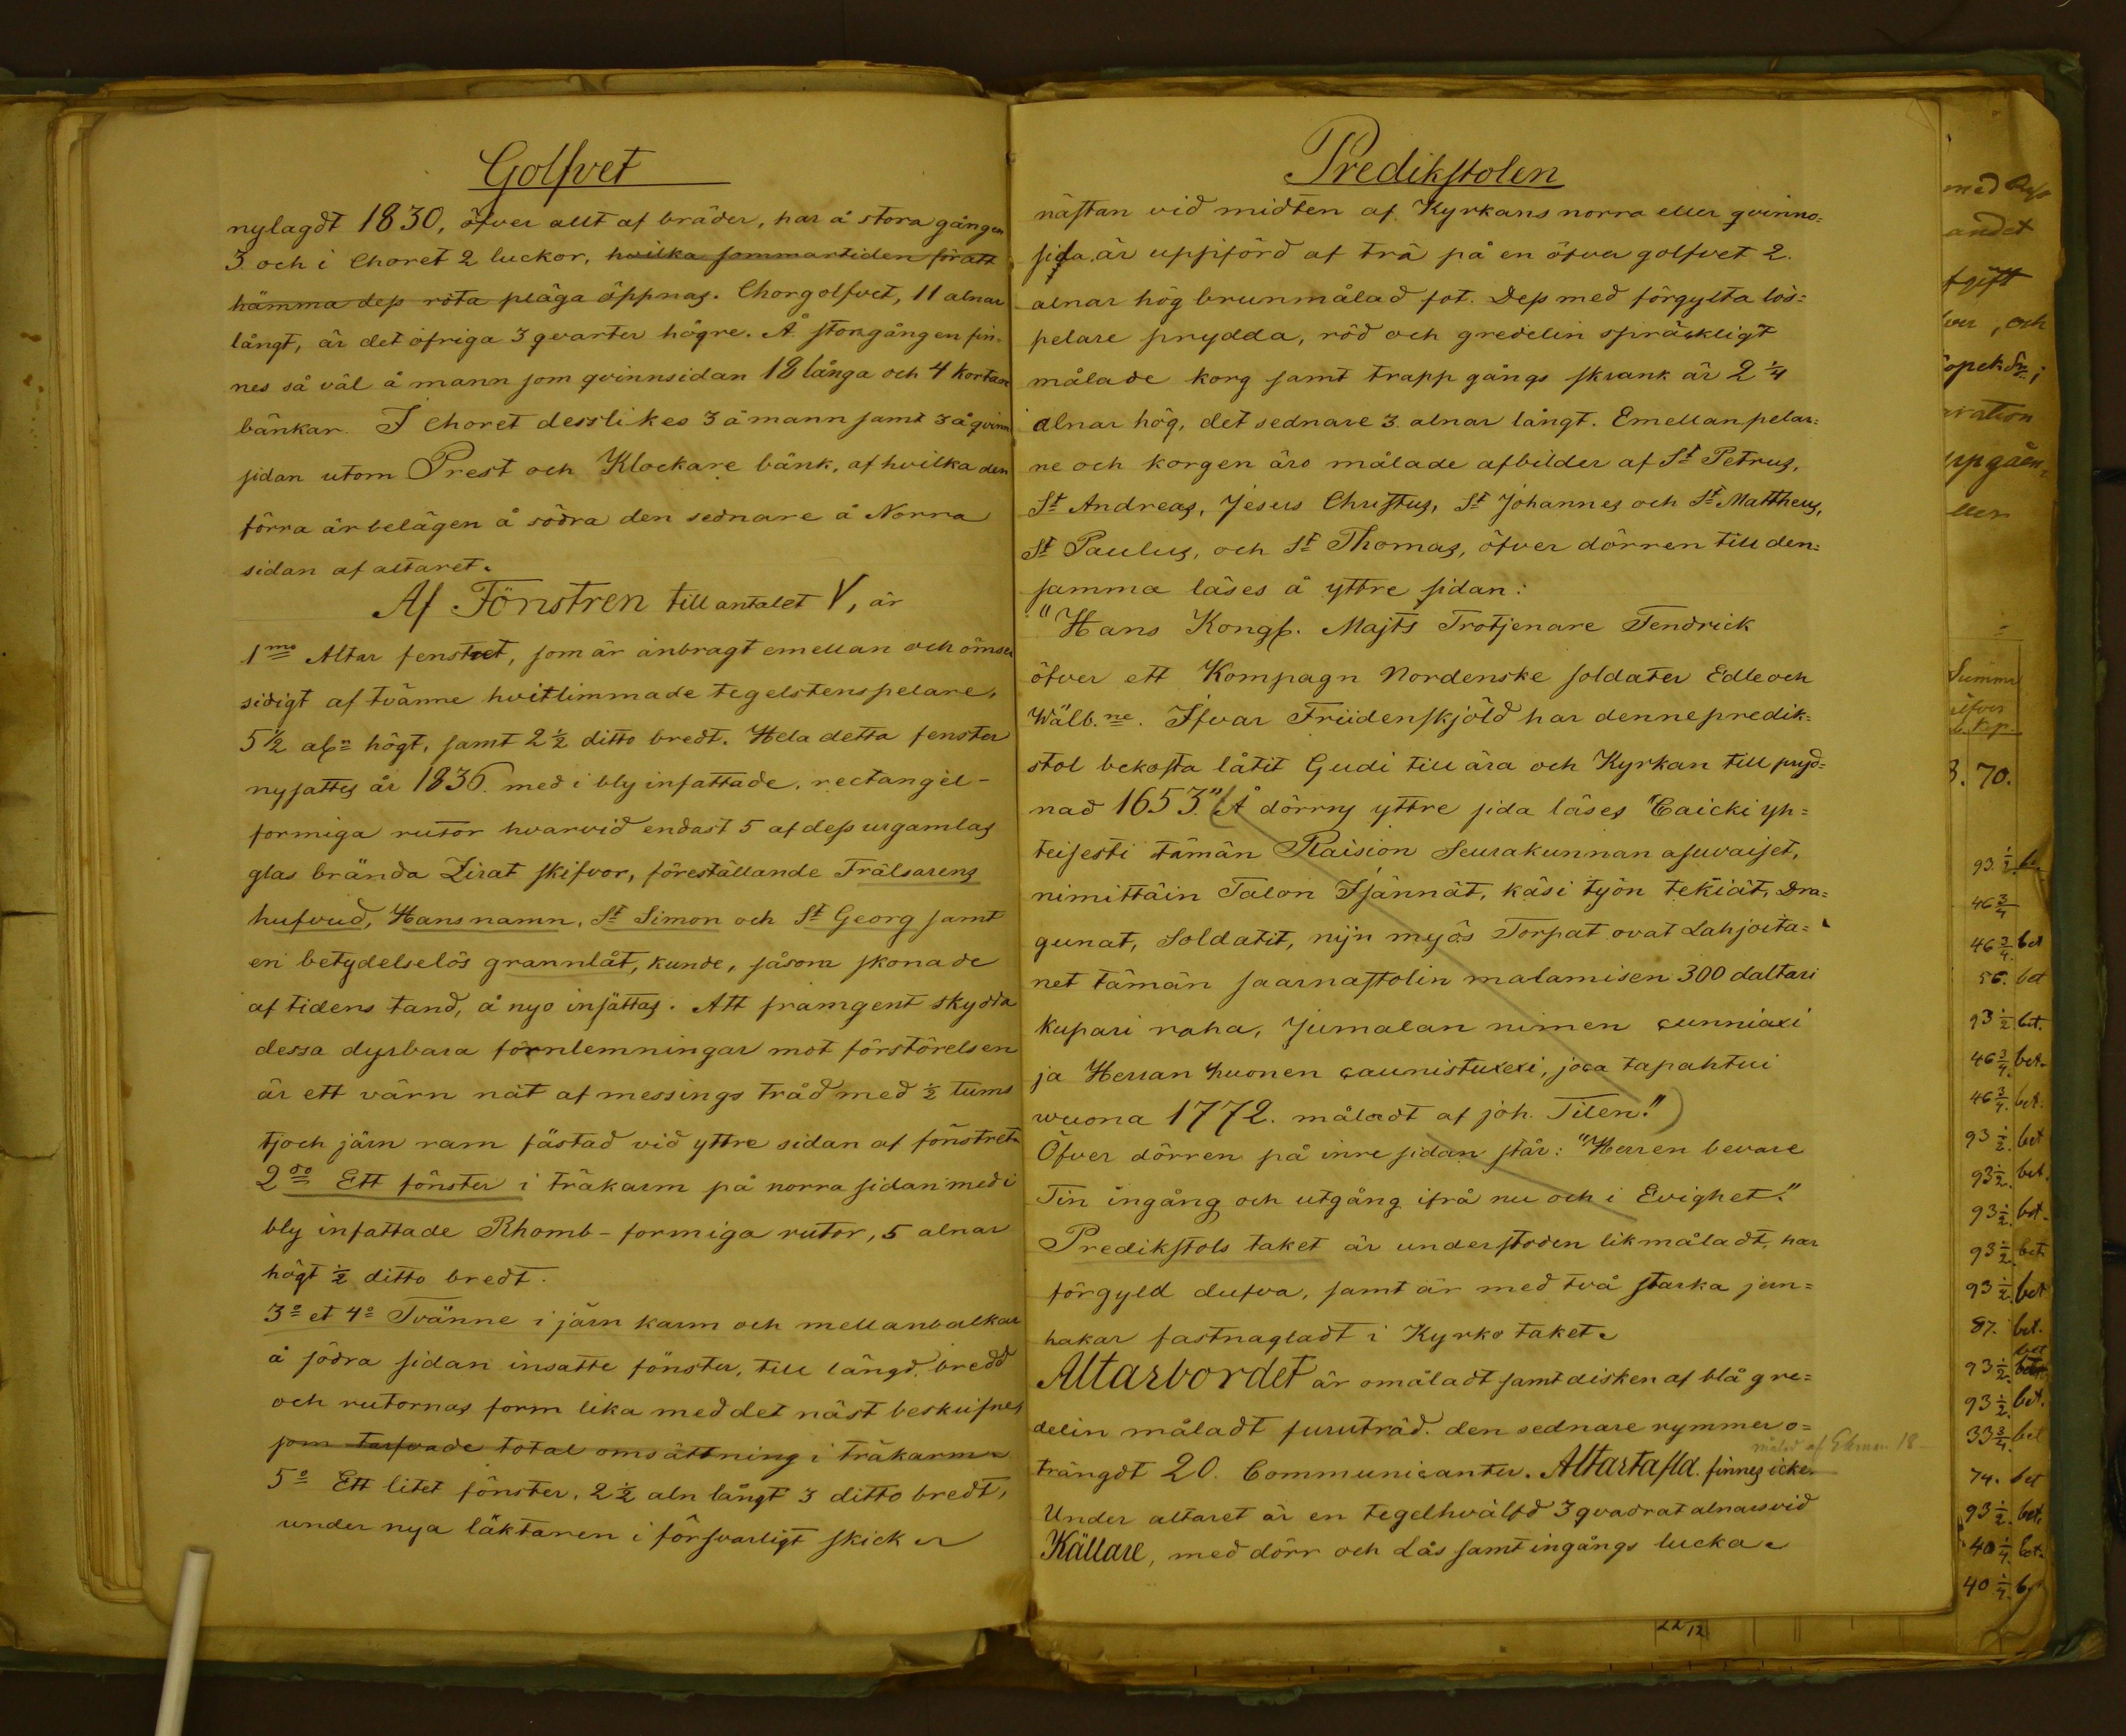 Golfvet
nylagdt 1830, öfver allt af bräder, har å stora gången
3 och i Choret 2 luckor, hvilka sommartiden för att
hämma dess röta pläga öppnas. Chorgolfvet, 11 alnar
långt, är det öfriga 3 qvarter högre. Å storgången fin-
nes så väl å mann som qvinnsidan 18 långa och 4 kortare
bänkar. I Choret desslikes 3 å mann samt 3 å qvinn
sidan utom Prest och Klockare bänk, af hvilka den
förra är belägen å södra den sednare å Norra
sidan af altaret.
Af Fönstren till antalet V, är
1mo Altar fenstret, som är anbragt emellan och ömse
sidigt af tvänne hvitlimmade tegelstenspelare,
5 1/2 aln högt, samt 2 1/2 ditto bredt. Hela detta fenster
nysattes år 1836. med i bly infattade, rectangel-
formiga rutor hvarvid endast 5 af dess urgamlas
glas brända Zirat skifvor, föreställande Frälsarens
hufvud, Hans namn, St Simon och St Georg samt
en betydelselös grannlåt, kunde, såsom skonade
af tidens tand, å nyo insättas. Att framgent skydda
dessa dyrbara fornlemningar mot förstörelsen
är ett värn nät af messings tråd med 1/2 tums
tjock järn ram fästad vid yttre sidan af fönstret.
2do Ett fönster i träkarm på norra sidan med i
bly infattade Rhomb-formiga rutor, 5 alnar
högt 1/2 ditto bredt.
3o et 4o Tvänne i järn karm och mellanbalkar
å södra sidan insatte fönster, till längd, bredd
och rutornas form lika med det näst beskrifne,
som tarfvade total omsättning i träkarm.
5o Ett litet fönster, 2 1/2 aln långt 3 ditto bredt,
under nya läktaren i försvarligt skick
Predikstolen
nästan vid midten af Kyrkans norra eller qvinno=
sida, är uppförd af trä på en öfver golfvet 2.
alnar hög brunmålad fot. Dess med förgylta lös=
pelare prydda, röd och gredelin spräckligt
målade korg samt trapp gångs skrank är 2 1/4
alnar hög, det sednare 3. alnar långt. Emellan pelar=
ne och korgen äro målade afbilder af St Petrus,
St Andreas, Jesus Christus, St Johannes och St Mattheus,
St Paulus, och St Thomas, öfver dörren till den=
samma läses å yttre sidan:
"Hans Kongl. Majts Trotjenare Fendrick
öfver ett Kompagn Nordenske soldater Edle och
Wälb.ne. Ifvar Friidenskjöld har denne predik=
stol bekosta låtit Gudi till ära och Kyrkan till pryd=
nad 1653." (Å dörrns yttre sida läses "Caicki yh=
teisesti tämän Raision Seurakunnan asuvaiset,
nimittäin Talon Isännät, käsi työn tekiät, Dra=
gunat, Soldatit, nijn myös Torpat ovat Lahjoita=
net tämän saarnastolin malamisen 300 daltari
kupari raha, Jumalan nimen cunniaxi
ja Herran huonen caunistuxexi, joca tapahtui
wuona 1772. måladt af joh. Tilen.")
Öfver dörren på inre sidan står: "Herren bevare
Tin ingång och utgång ifrå nu och i Evighet."
Predikstols taket är understöden likmåladt, har
förgyld dufva, samt är med två starka jern=
hakar fastnagladt i Kyrko taket.
Altarbordet är omåladt samt disken af blå gre=
delin måladt furuträd. den sednare rymmer o=
målad af Ekman 18
trängdt 20. Communicanter. Altartafla. finnes icke.
Under altaret är en tegelhvälfd 3 qvadrat alnars vid
Källare, med dörr och Lås samt ingångs lucka.
med
andet
fgift
ver, och
ller
Summa
öfver
kop.
3. 70.
93 1/2
46 3/4
46 3/4 bet
56. bet
93 1/2 bet.
46 3/4 bet.
46 3/4. bet.
93 1/2. bet
93 1/2. bet.
93 1/2. bet.
93 1/2. bet.
93 1/2. bet
87. bet.
bet
93 1/2.
93 1/2. bet.
33 3/4. bet
74. bet
93 1/2. bet.
40 1/4. bet.
40 1/4.
22/12